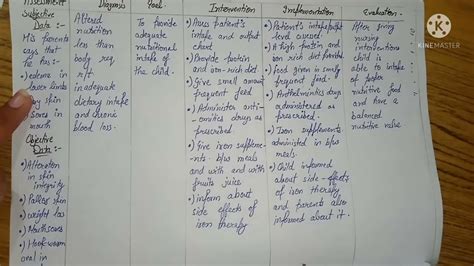 Assessment
Subjective
Data :-
His parents
says that
he has:-
•) edema in
lower limbs
Dry skin
sores in
mouth
Objective
Data :-
•) Alteration
in skin
integrity
•) Pallor skin
•) weight loss
•) Mouth sores
•) Hookworm
oral in
Diagnosis
Altered
nutrition
less than
body req
r/t
inadequate
dietary intake
and chronic
blood loss.
Goal
To provide
adequate
nutritional
intake of
the child.
Intervention
•) Assess patient's
intake and output
chart
•) Provide protein
and iron-rich diet.
•) Give small amount
frequent feed
•) Administer anti-
emetics drugs as
prescribed.
•) Give iron supplem-
ents b/w meals
and with
fruits juice
•) inform about
side effects of
iron therapy
Implementation
•) Patient's intake/output
chart assessed
•) A high protein and
iron rich diet provided
•) Food given in small
frequent feed.
•) Antihelmintics drugs
administered as
prescribed.
•) Iron supplements
administed in b/w
meals.
•) Child informed
about side-effects
of iron therapy
and parents also
informed about it.
Evaluation
After giving
nursing
interventions
child is
able to intake
of proper
nutritive food
and have a
balanced
nutritive value
KINEMASTER